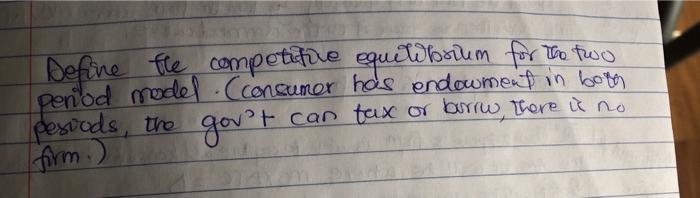 Define the competitive equilibrium for the two
period model. (consumer has endowment in both
periods, the gov't can tax or borrow, there is no
firm.)